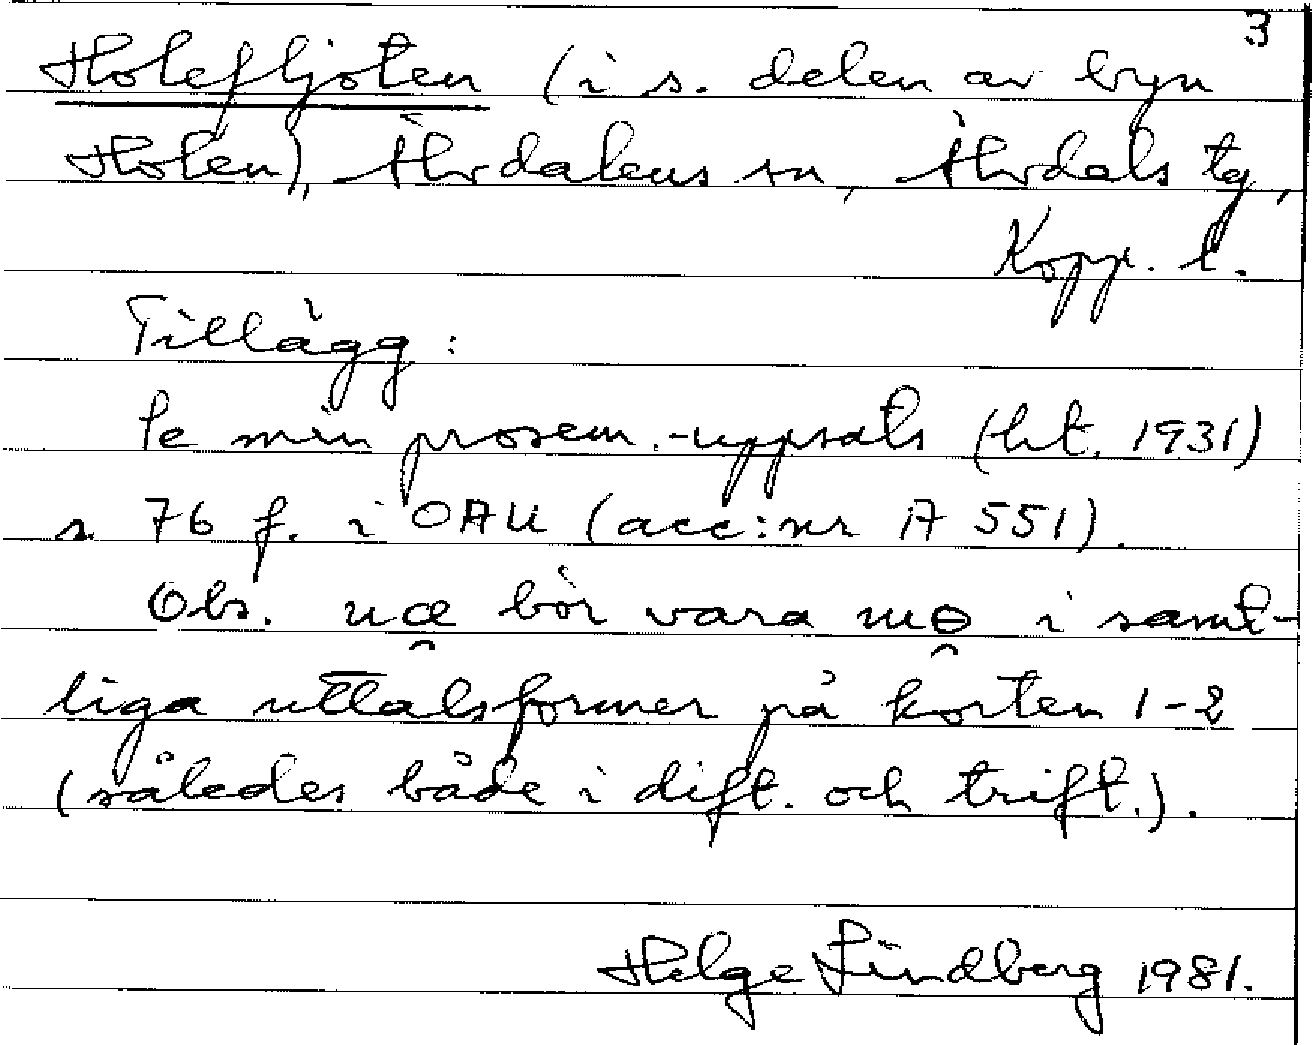 3
Holefljoten (i s. delen av byn
Holen), Älvdalens sn, Älvdals tg,
Kopp. l.
Tillägg:
Se min prosem.-uppsats (ht. 1931)
s. 76 f. i OAU (acc:nr A 551).
Obs. uœ bör vara uɵ i samt-
liga uttalsformer på korten 1-2
(således både i dift. och trift.).
Helge Lindberg 1981.